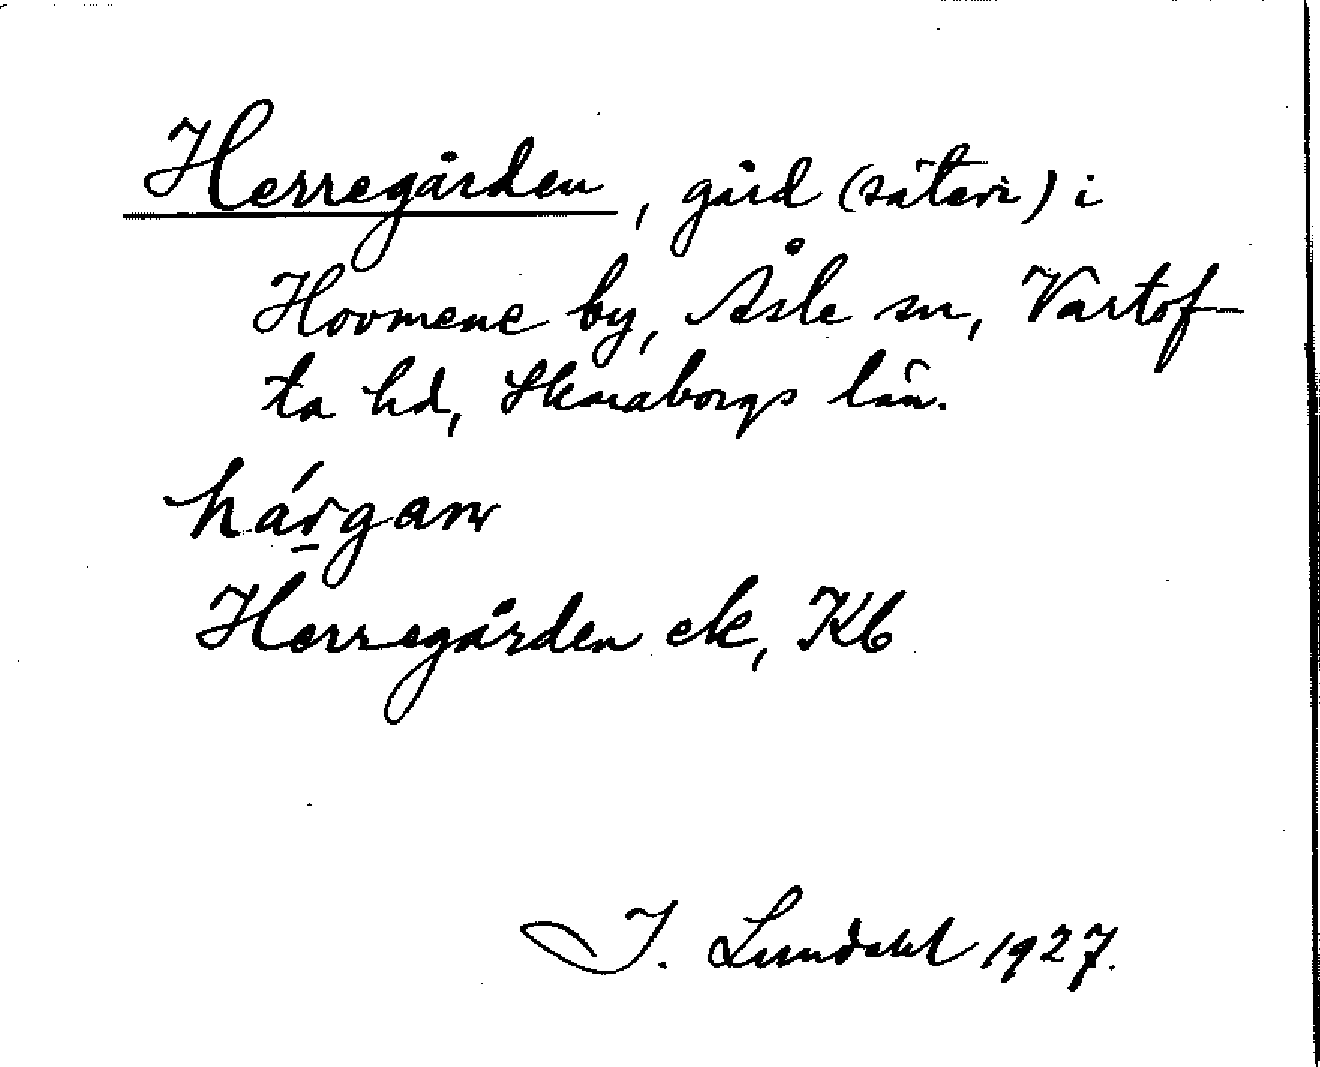 Herregården, gård (säteri) i
Hovmene by, Åsle sn, Vartof-
ta hd, Skaraborgs län.
hárgan
Herregården ek, Kb
I. Lundahl 1927.